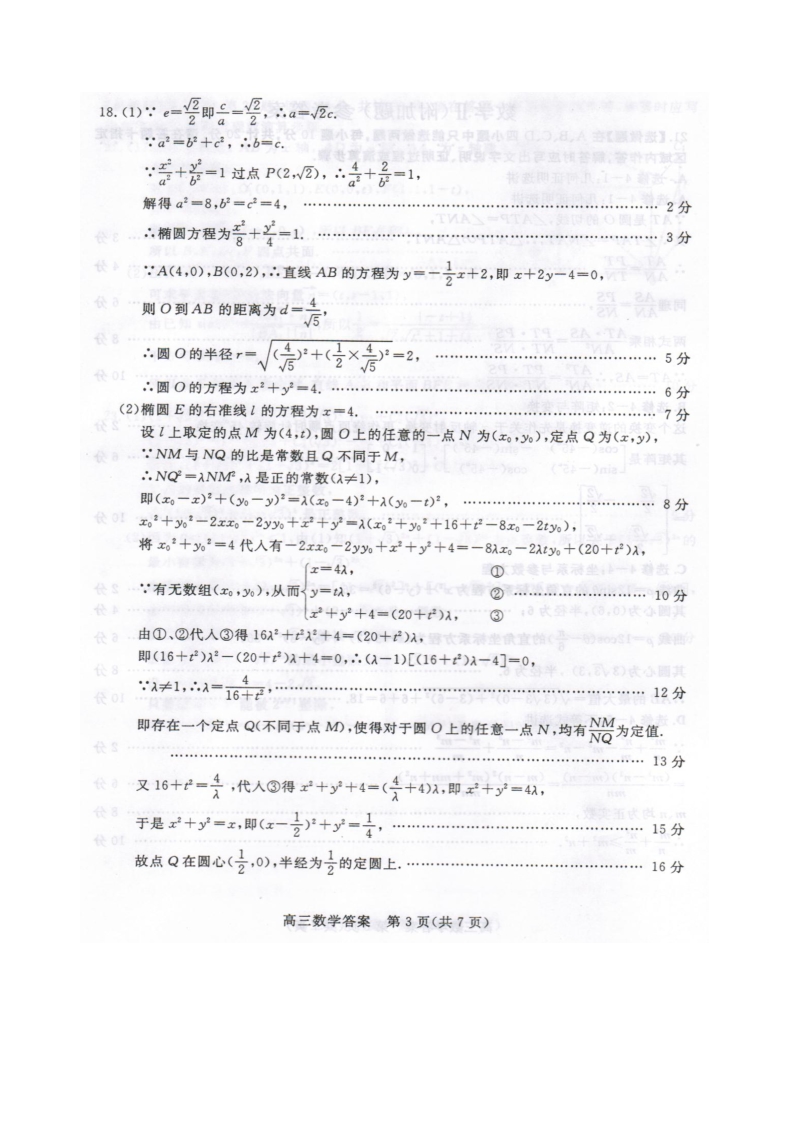 18.(1)∵ e=√2/2即c/a=√2/2,∴a=√2c.
∵a²=b²+c²,∴b=c.
∵x²/a²+y²/b²=1 过点 P(2,√2),∴4/a²+2/b²=1,
解得 a²=8,b²=c²=4, …… 2分
∴椭圆方程为x²/8+y²/4=1. …… 3分
∵A(4,0),B(0,2),∴直线 AB 的方程为 y=-1/2x+2,即 x+2y-4=0,
则 O 到 AB 的距离为 d=4/√5,
∴圆 O 的半径 r=√((4/√5)²+(1/2×4/√5)²)=2, …… 5分
∴圆 O 的方程为 x²+y²=4. …… 6分
(2)椭圆 E 的右准线 l 的方程为 x=4. …… 7分
设 l 上取定的点 M 为(4,t),圆 O 上的任意的一点 N 为(x₀,y₀),定点 Q 为(x,y),
∵NM 与 NQ 的比是常数且 Q 不同于 M,
∴NQ²=λNM²,λ 是正的常数(λ≠1),
即(x₀-x)²+(y₀-y)²=λ(x₀-4)²+λ(y₀-t)², …… 8分
x₀²+y₀²-2xx₀-2yy₀+x²+y²=λ(x₀²+y₀²+16+t²-8x₀-2ty₀),
将 x₀²+y₀²=4 代入有-2xx₀-2yy₀+x²+y²+4=-8λx₀-2λty₀+(20+t²)λ,
x=4λ, ①
∵有无数组(x₀,y₀),从而{y=tλ, ② …… 10分
x²+y²+4=(20+t²)λ, ③
由①、②代人③得 16λ²+t²λ²+4=(20+t²)λ,
即(16+t²)λ²-(20+t²)λ+4=0,∴(λ-1)[(16+t²)λ-4]=0,
∵λ≠1,∴λ=4/(16+t²), …… 12分
即存在一个定点 Q(不同于点 M),使得对于圆 O 上的任意一点 N,均有NM/NQ为定值.
…… 13分
又 16+t²=4/λ,代人③得 x²+y²+4=(4/λ+4)λ,即 x²+y²=4λ,
于是 x²+y²=x,即(x-1/2)²+y²=1/4, …… 15分
故点 Q 在圆心(1/2,0),半经为1/2的定圆上. …… 16分
高三数学答案 第 3 页(共 7 页)